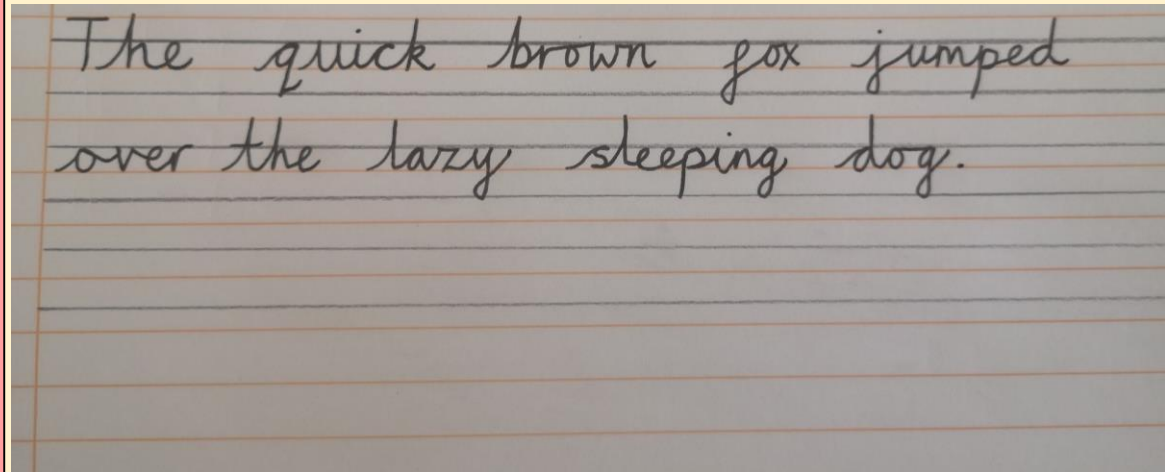 The quick brown fox jumped
over the lazy sleeping dog.